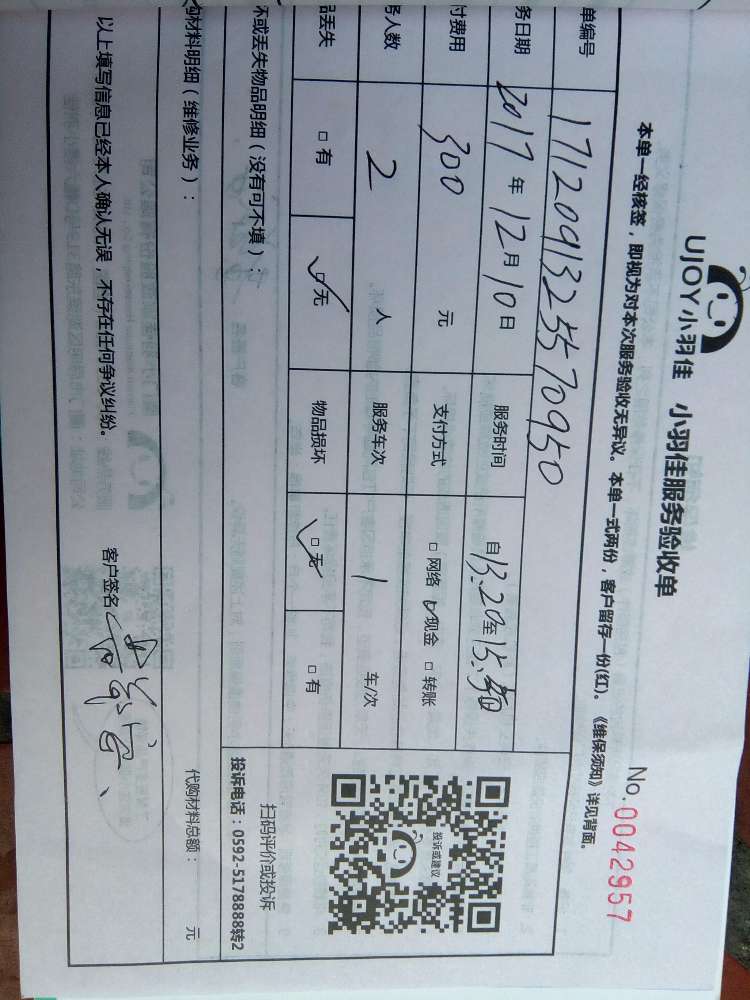 UJOY小羽佳 小羽佳服务验收单
No.0042957
本单一经核签，即视为对本次服务验收无异议。本单一式两份，客户留存一份(红)。《维保须知》详见背面。
单编号 17120913255570950
务日期 2017年12月10日 服务时间 自13:20至15:50
付费用 300 元 支付方式 □ 网络 ☑现金 □ 转账
务人数 2 人 服务车次 1 车/次
品丢失 □ 有 ☑无 物品损坏 ☑无 □ 有
投诉或建议
扫码评价或投诉
投诉电话：0592-5178888转2
坏或丢失物品明细（没有可不填）：
购材料明细（维修业务）： 代购材料总额： 元
以上填写信息已经本人确认无误，不存在任何争议纠纷。 客户签名